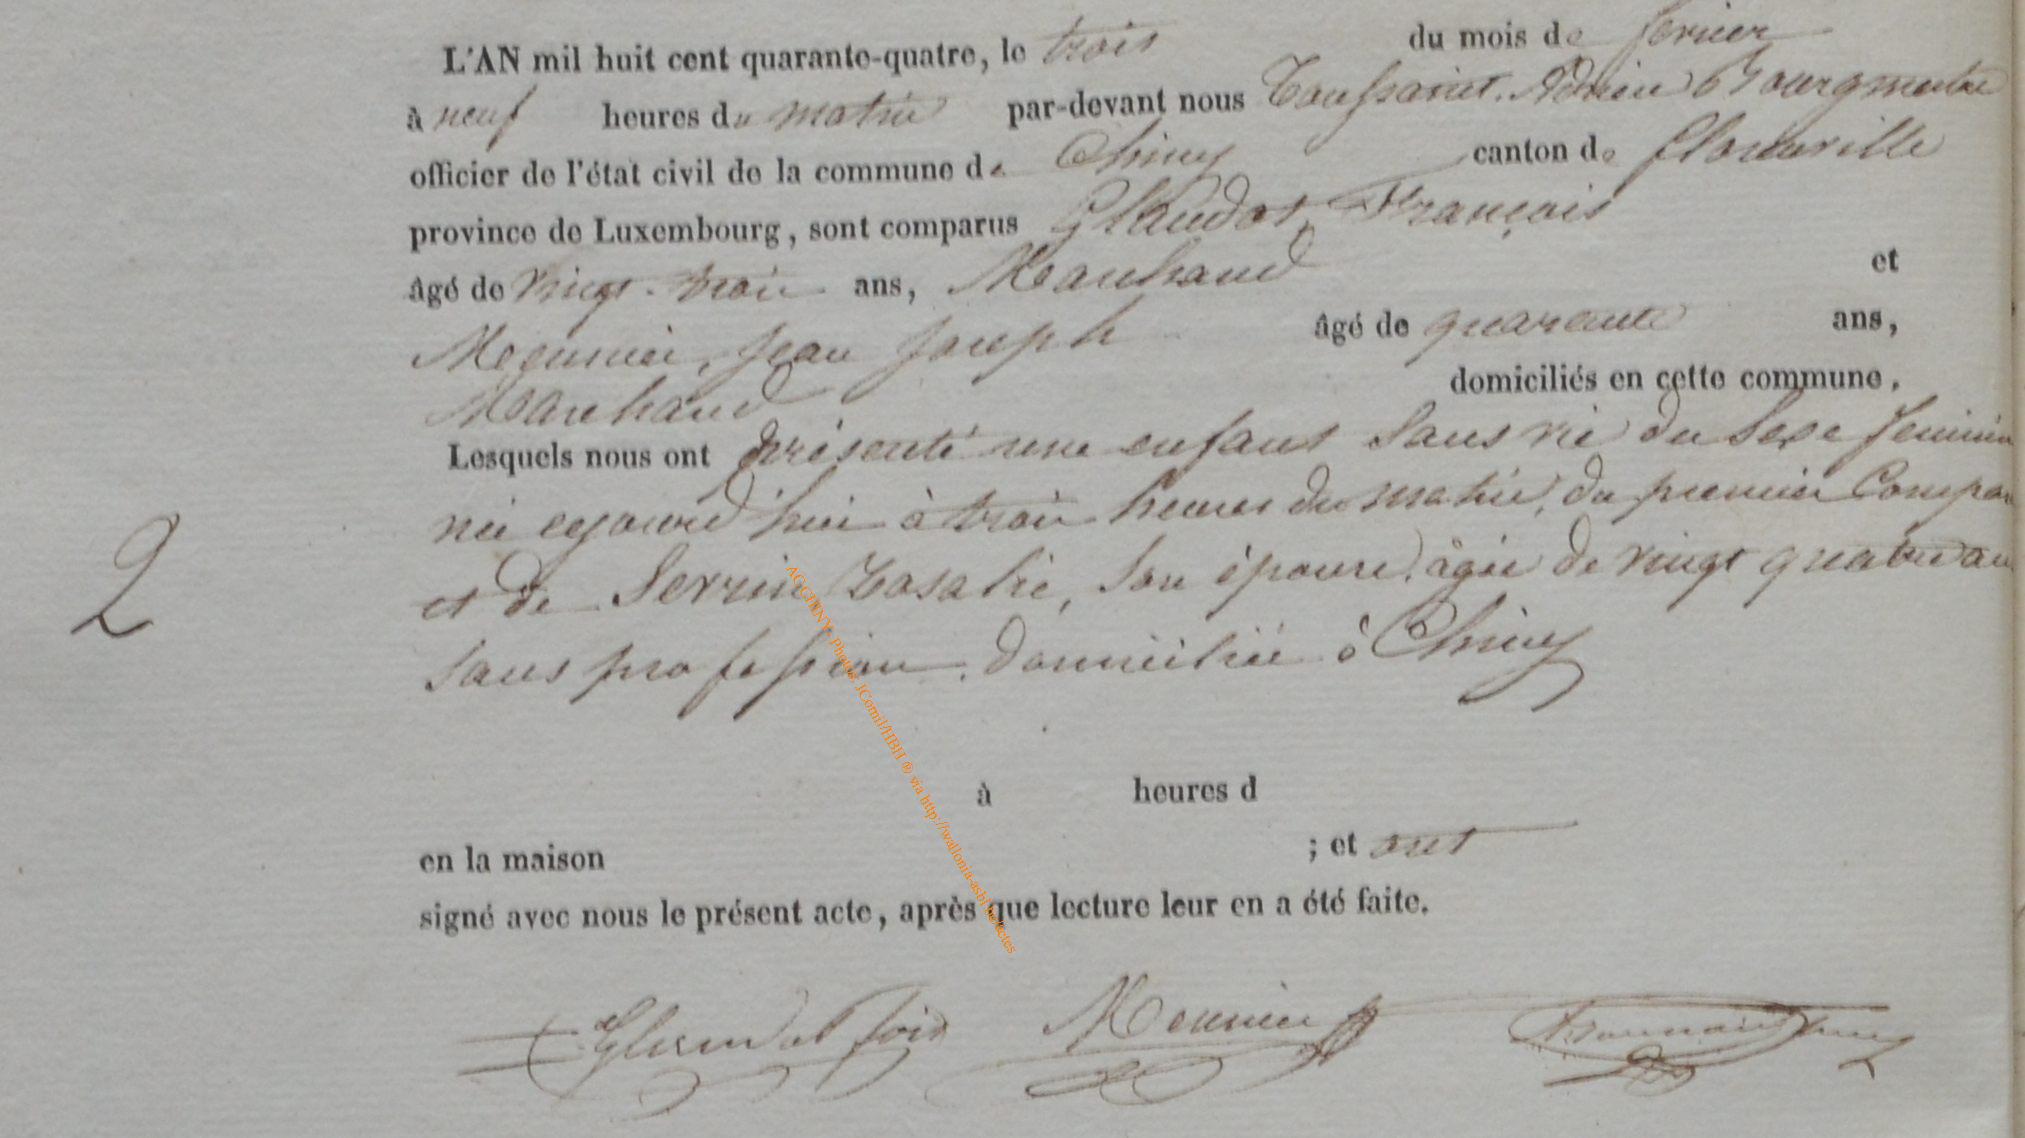 L'AN mil huit cent quarante-quatre, le trois du mois de fevrier
à neuf heures du matin par-devant nous Toussaint. Adrien Bourgmestre
officier de l'état civil de la commune de Chiny canton de florenville
province de Luxembourg, sont comparus Glaudot, François
âgé de vingt-trois ans, Marchand et
Meunier, Jean Joseph âgé de quarante ans,
Marchand domiciliés en cette commune.
Lesquels nous ont présenté une enfant Sans vie du Sexe feminin
née cejourd'hui à trois heures du matin, du premier Compar
et de Servin Rosalie, Son épouse, agée de vingt quatre ans
Sans profession, domiciliée à Chiny
2
à heures d
en la maison ; et ont
signé avec nous le présent acte, après que lecture leur en a été faite.
Meunier
AGCHINY - Photos JCornil/HBH ® via http://wallonia-asbl.be/actes